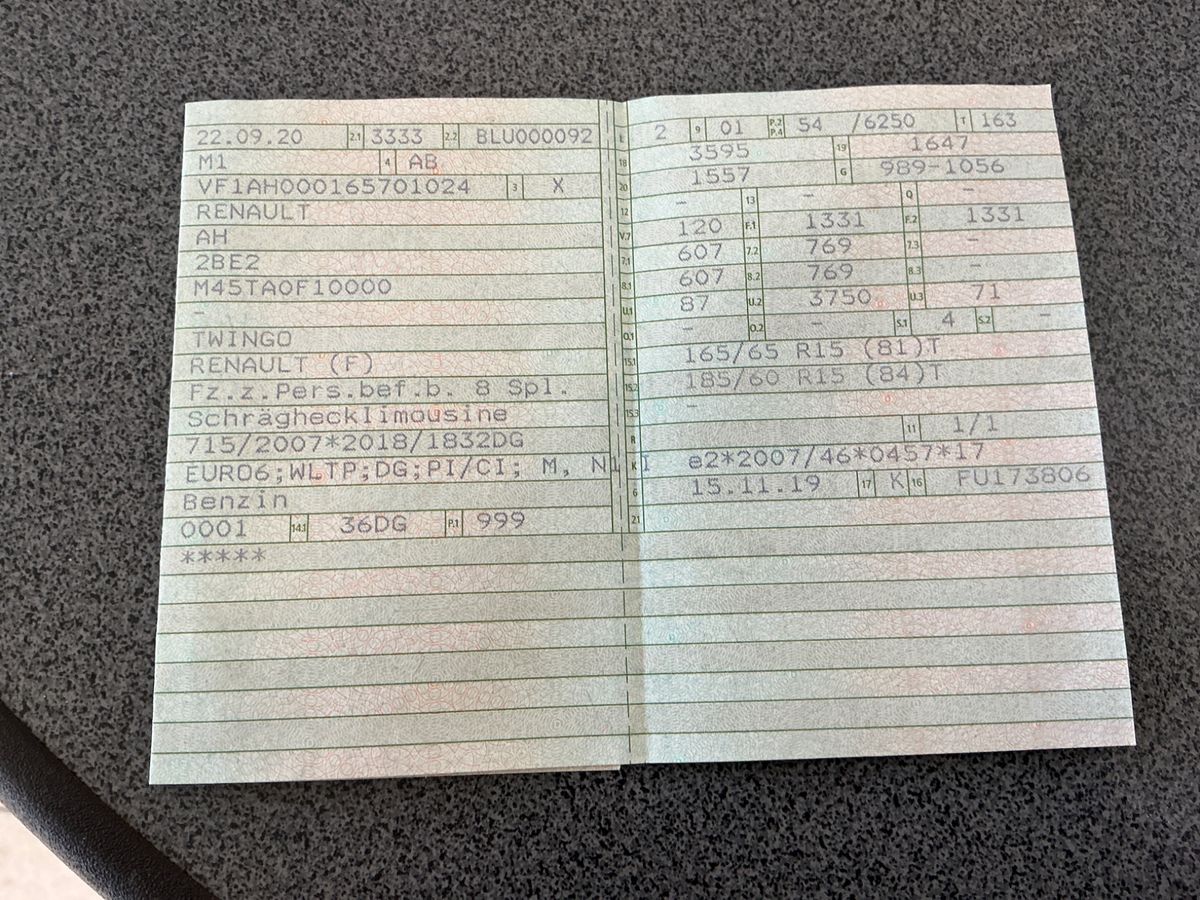 22.09.20 2.1 3333 2.2 BLU000092
M1 4 AB
VF1AH000165701024 3 X
RENAULT
AH
2BE2
M45TA0F10000
-
TWINGO
RENAULT (F)
Fz.z.Pers.bef.b. 8 Spl.
Schräghecklimousine
715/2007*2018/1832DG
EURO6;WLTP;DG;PI/CI; M, N1 I
Benzin
0001 14.1 36DG P.1 999
*****
L 2 9 01 P.2 P.4 54 /6250 T 163
18 3595 19 1647
20 1557 G 989-1056
12 - 13 - Q -
V.7 120 F.1 1331 F.2 1331
7.1 607 7.2 769 7.3 -
8.1 607 8.2 769 8.3 -
U.1 87 U.2 3750 U.3 71
O.1 - O.2 - S.1 4 S.2 -
15.1 165/65 R15 (81)T
15.2 185/60 R15 (84)T
15.3 -
R 11 1/1
K e2*2007/46*0457*17
6 15.11.19 17 K 16 FU173806
21